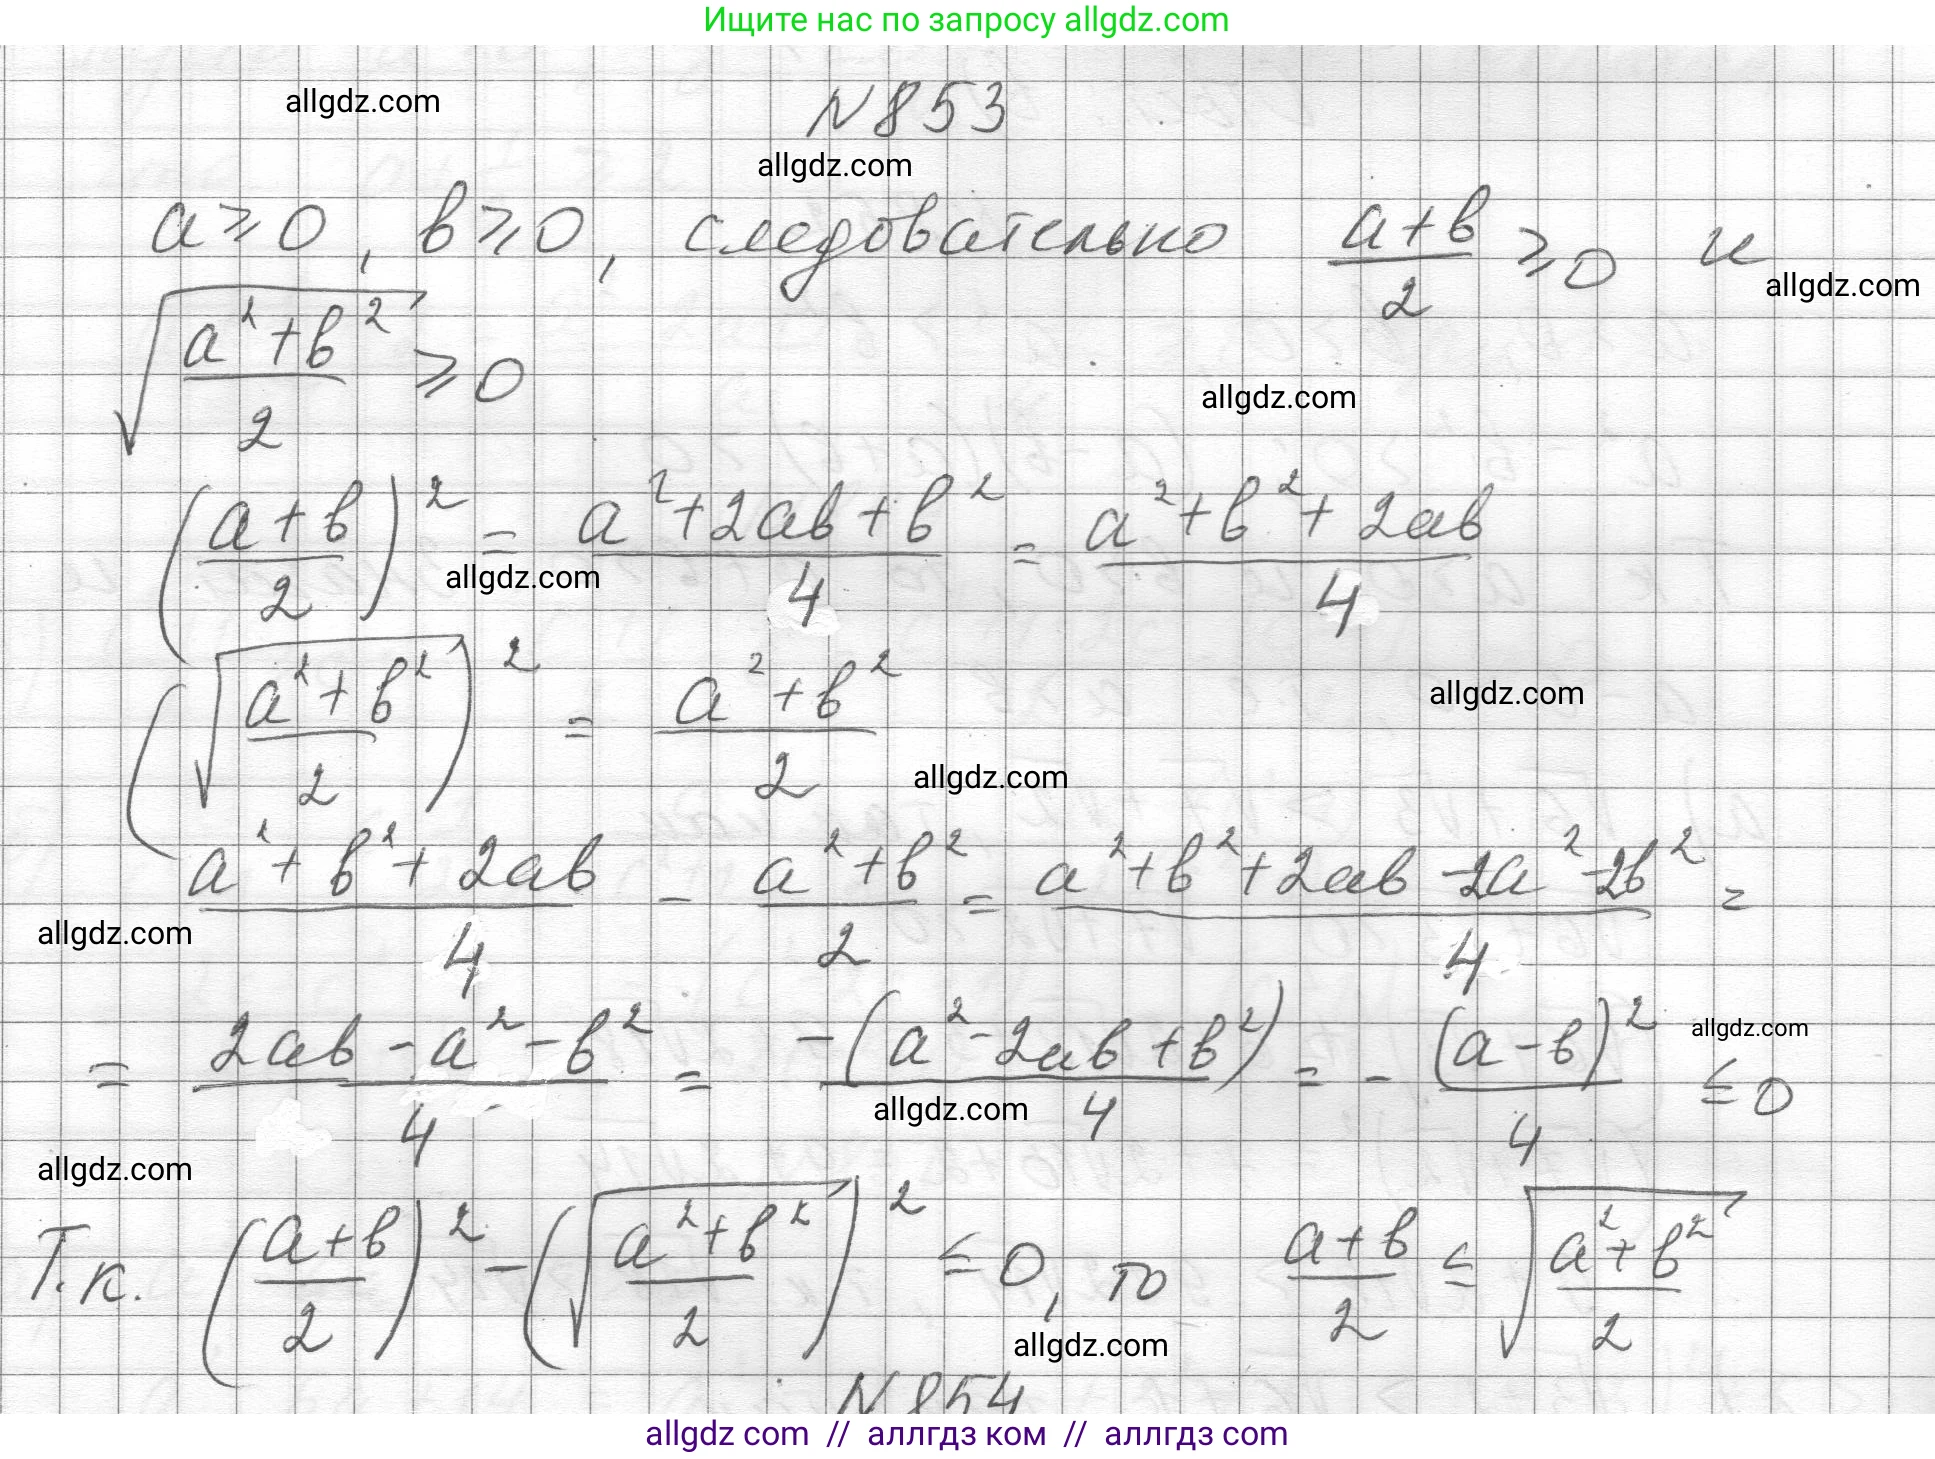 Ищите нас по запросу allgdz.com
allgdz.com
N853
allgdz.com
a ≥ 0, b ≥ 0, следовательно (a+b)/2 ≥ 0 и
allgdz.com
√((a²+b²)/2) ≥ 0
allgdz.com
((a+b)/2)² = (a²+2ab+b²)/4 = (a²+b²+2ab)/4
allgdz.com
(√((a²+b²)/2))² = (a²+b²)/2
allgdz.com
allgdz.com
(a²+b²+2ab)/4 - (a²+b²)/2 = (a²+b²+2ab-2a²-2b²)/4 =
allgdz.com
= (2ab-a²-b²)/4 = -(a²-2ab+b²)/4 = - (a-b)²/4 ≤ 0
allgdz.com
allgdz.com
allgdz.com
Т.к. ((a+b)/2)² - (√((a²+b²)/2))² ≤ 0, то (a+b)/2 ≤ √((a²+b²)/2)
allgdz.com
N854
allgdz com // аллгдз ком // аллгдз com